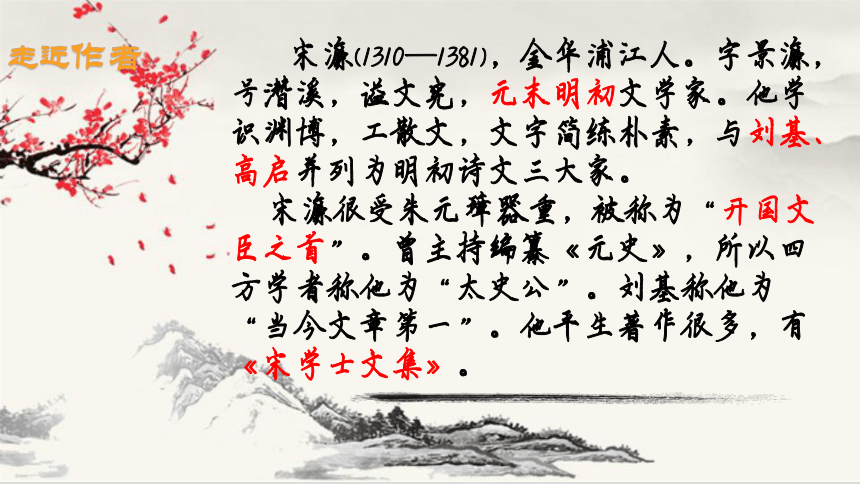 走近作者
宋濂(1310—1381)，金华浦江人。字景濂，
号潜溪，谥文宪，元末明初文学家。他学
识渊博，工散文，文字简练朴素，与刘基、
高启并列为明初诗文三大家。
宋濂很受朱元璋器重，被称为“开国文
臣之首”。曾主持编纂《元史》，所以四
方学者称他为“太史公”。刘基称他为
“当今文章第一”。他平生著作很多，有
《宋学士文集》。